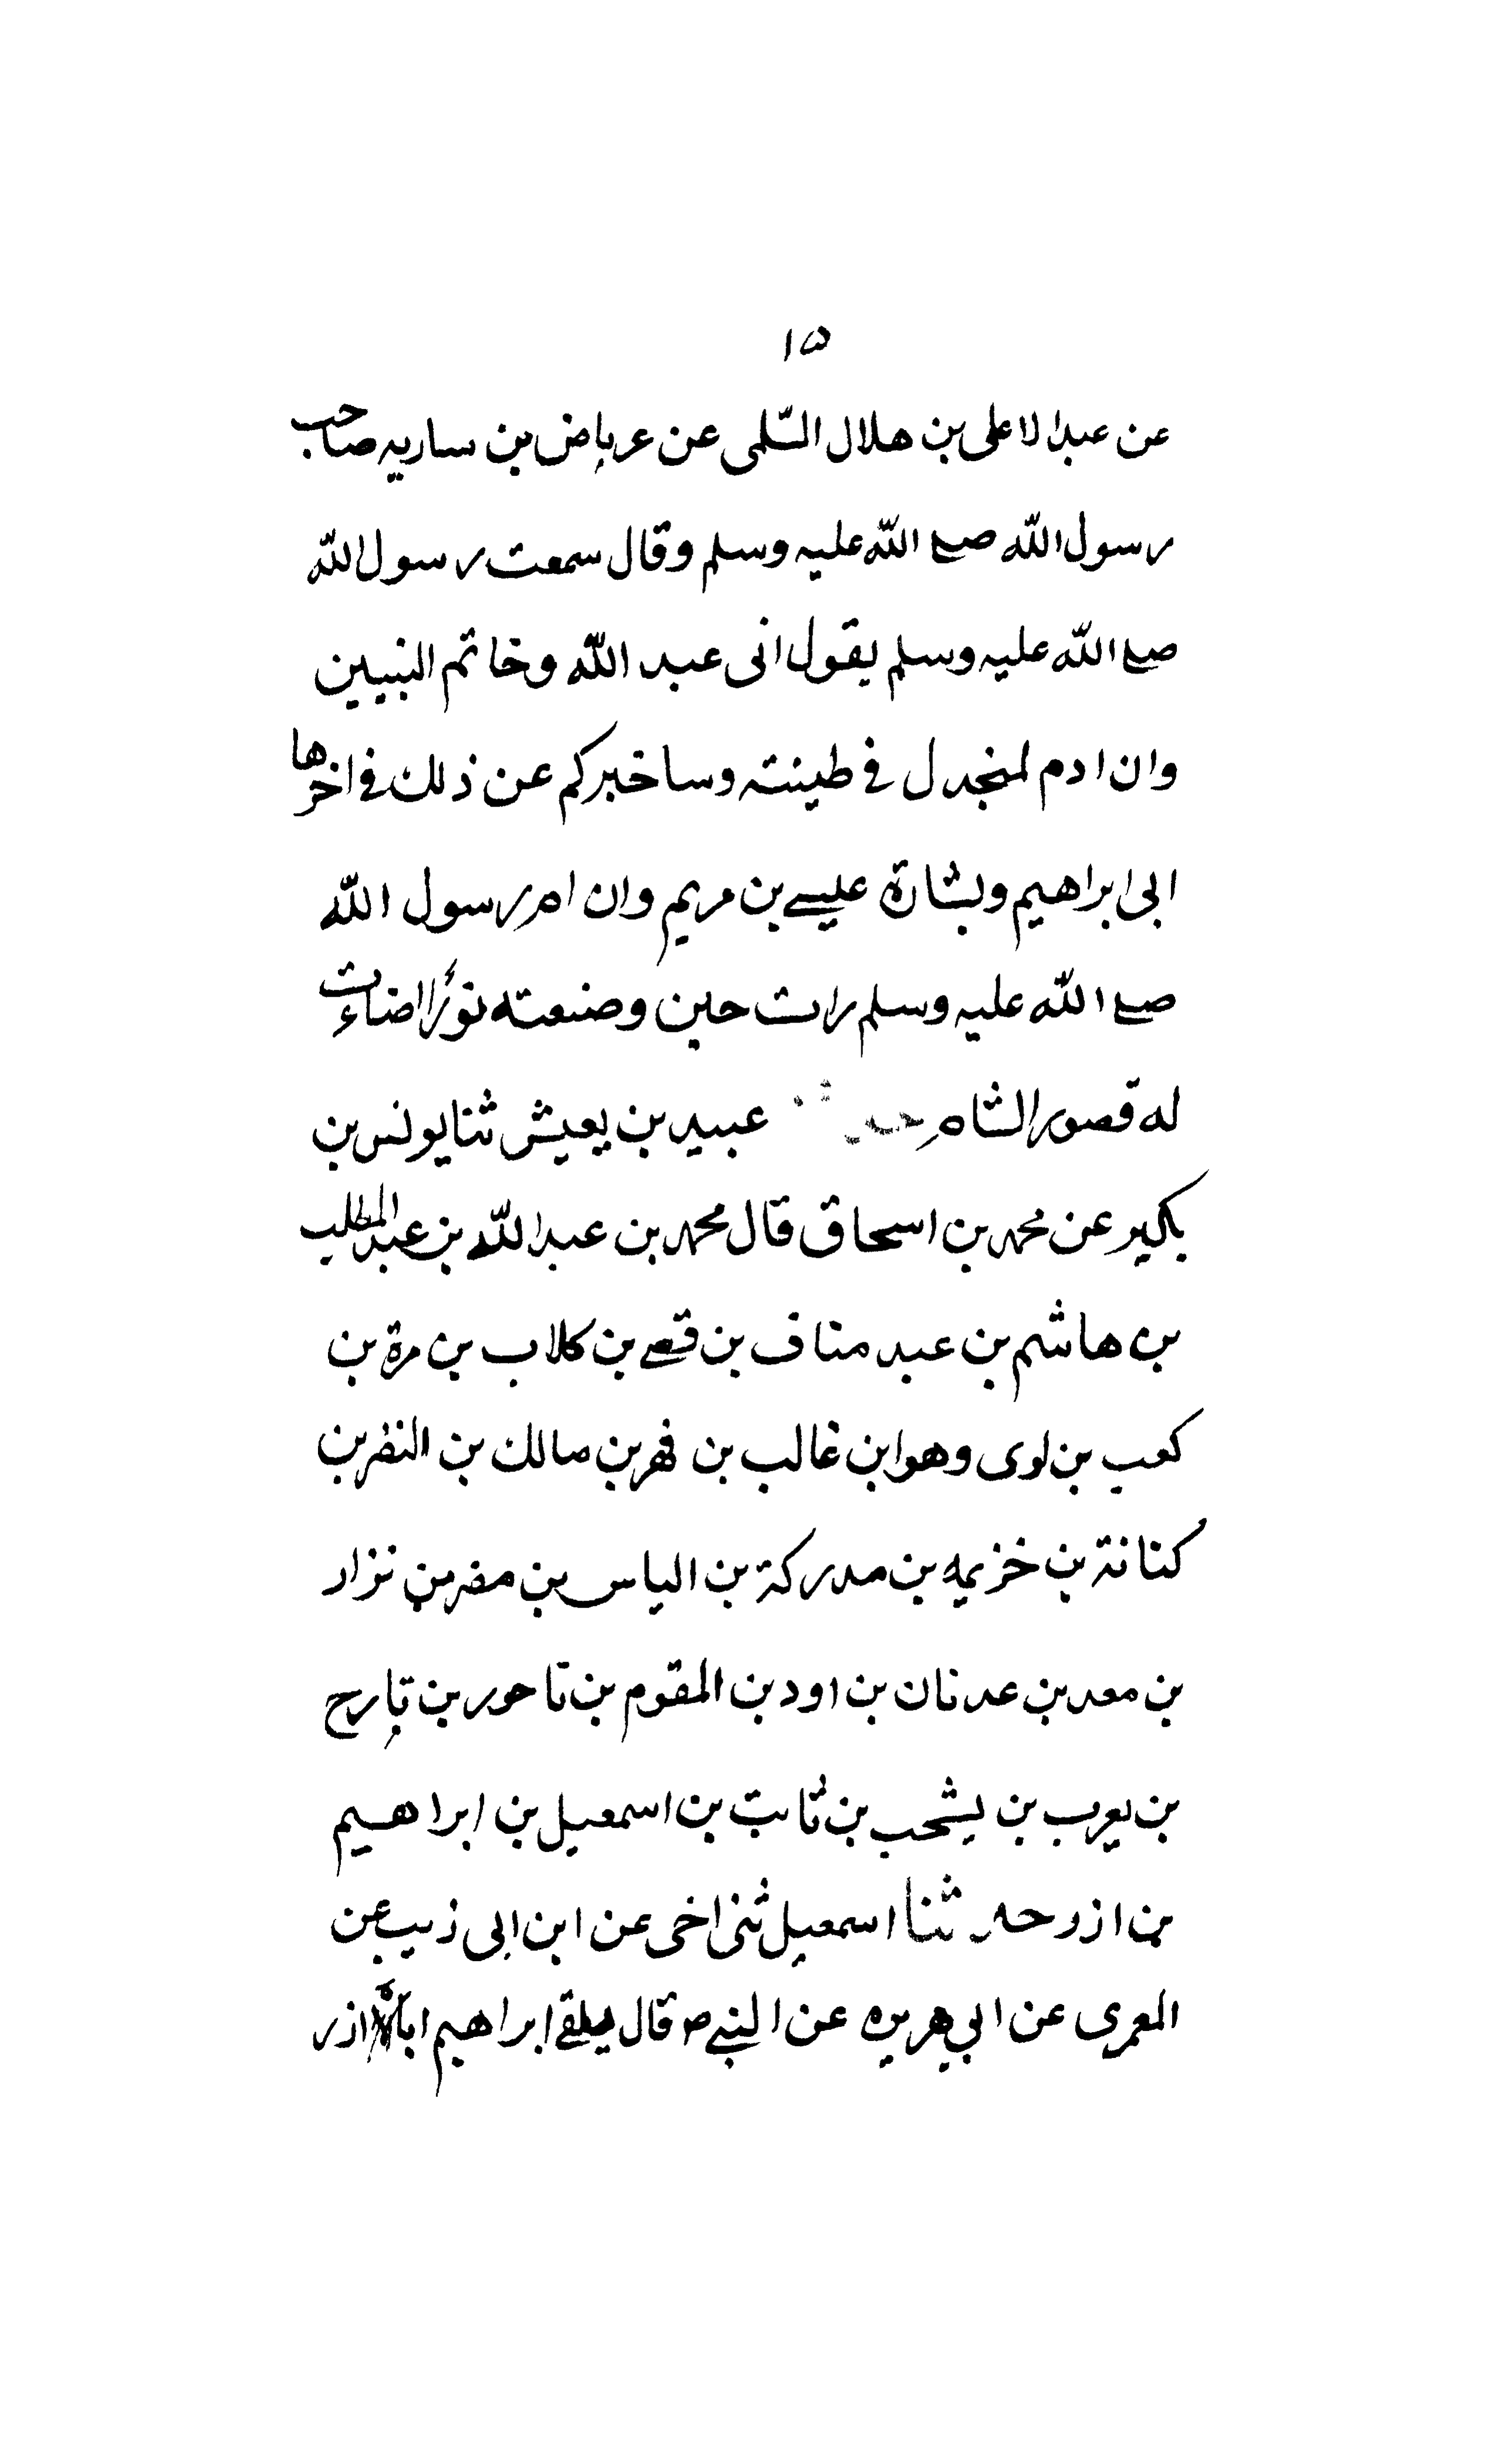 ١٥
عن عبدالاعلى بن هلال السّلمى عن عرباض بن ساريه صاحب
رسول الله صلے الله عليه وسلم وقال سمعت رسول الله
صلے الله عليه وسلم يقول انى عبد الله وخاتم النبيين
وان ادم لمنجدل فى طينته وساخبركم عن ذلك فى اخرها
ابى ابراهيم وبشارة عيسے بن مريم وان ام رسول الله
صلے الله عليه وسلم رات حين وضعته نورًا اضاءت
له قصور الشام عبيد بن يعيش ثنا يونس بن
بكير عن محمد بن اسحاق قال محمد بن عبدالله بن عبدالمطلب
بن هاشم بن عبد مناف بن قصے بن كلاب بن مرة بن
كعب بن لوى وهو ابن غالب بن فهر بن مالك بن النضر بن
كنانة بن خزيمه بن مدركة بن الياس بن مضر بن نزار
بن معد بن عدنان بن اود بن المقوم بن ناحور بن تارح
بن يعرب بن يشحب بن ثابت بن اسمعيل بن ابراهيم
بن ازر حد ثنا اسمعيل ثنى اخى عن ابن ابى ذيب عن
المعمرى عن ابي هريره عن النبے ص قال يلقے ابراهيم اباه ازر